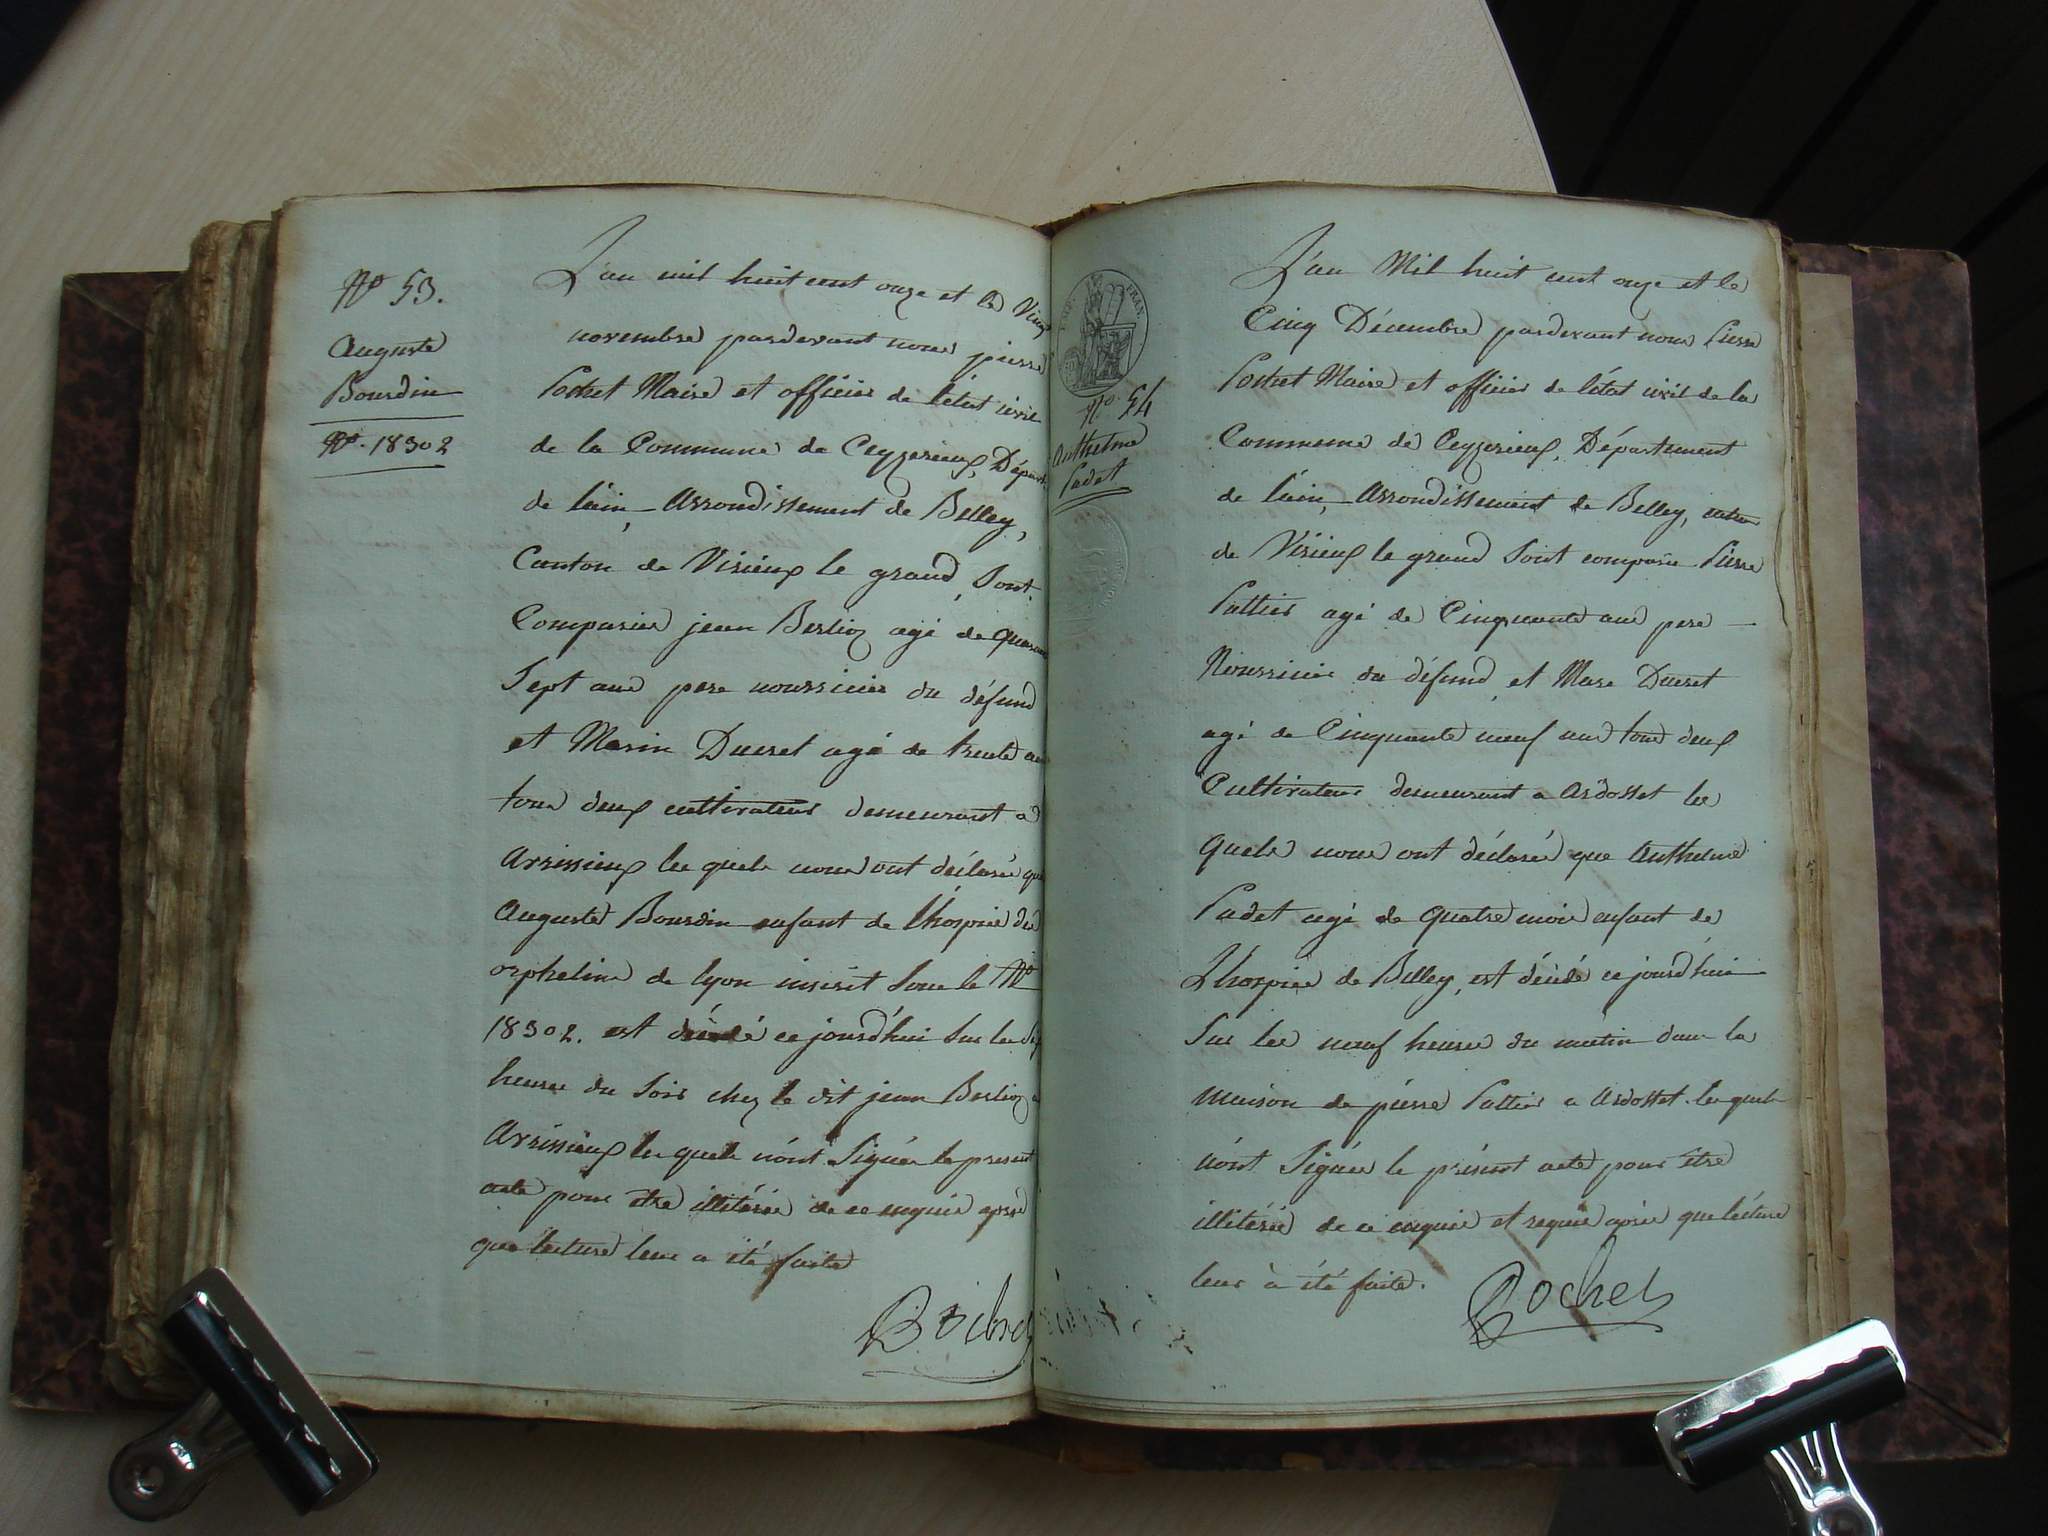 N° 53.
Auguste
Bourdin
N°. 18302
L'an mil huit cent onze et le Vingt
novembre pardevant nous pierre
Pochet Maire et officier de l'état civil
de la Commune de Ceyzerieux, Départ.
de l'ain, Arrondissement de Belley,
Canton de Virieux le grand, Sont
Comparus jean Berlioz agé de quarante
Sept ans pere nourricier du défund
et Marin Ducret agé de trente ans
tous deux cultivateurs demeurant a
Avrissieux les quels nous ont déclarés que
Auguste Bourdin enfant de l'hospice des
orphelins de lyon inscrit sous le N°
18302. est décédé ce jourd'hui sur les Six
heures du Soir chez le dit jean Berlioz a
Avrissieux les quels n'ont Signés le present
acte pour être illitérés de ce enquis après
que lecture leur a été faite
Pochet
EMP. FRAN.
N°. 54
Anthelme
Padet
L'an Mil huit cent onze et le
Cinq Décembre pardevant nous Pierre
Pochet Maire et officier de l'état civil de la
Commune de Ceyzerieux, Département
de l'ain, Arrondissement de Belley, canton
de Virieux le grand Sont comparus Pierre
Pattier agé de Cinquante ans pere
Nourricier du défund, et Marc Ducret
agé de Cinquante neuf ans tous deux
Cultivateurs demeurant a Ardosset les
quels nous ont déclarés que Anthelme
Padet agé de quatre mois enfant de
L'hospice de Belley, est décédé ce jourd'hui
Sur les neuf heures du matin dans la
maison de pierre Pattier a Ardosset les quels
n'ont Signés le présent acte pour être
illitérés de ce enquis et requis après que lecture
leur à été faite.
Pochet